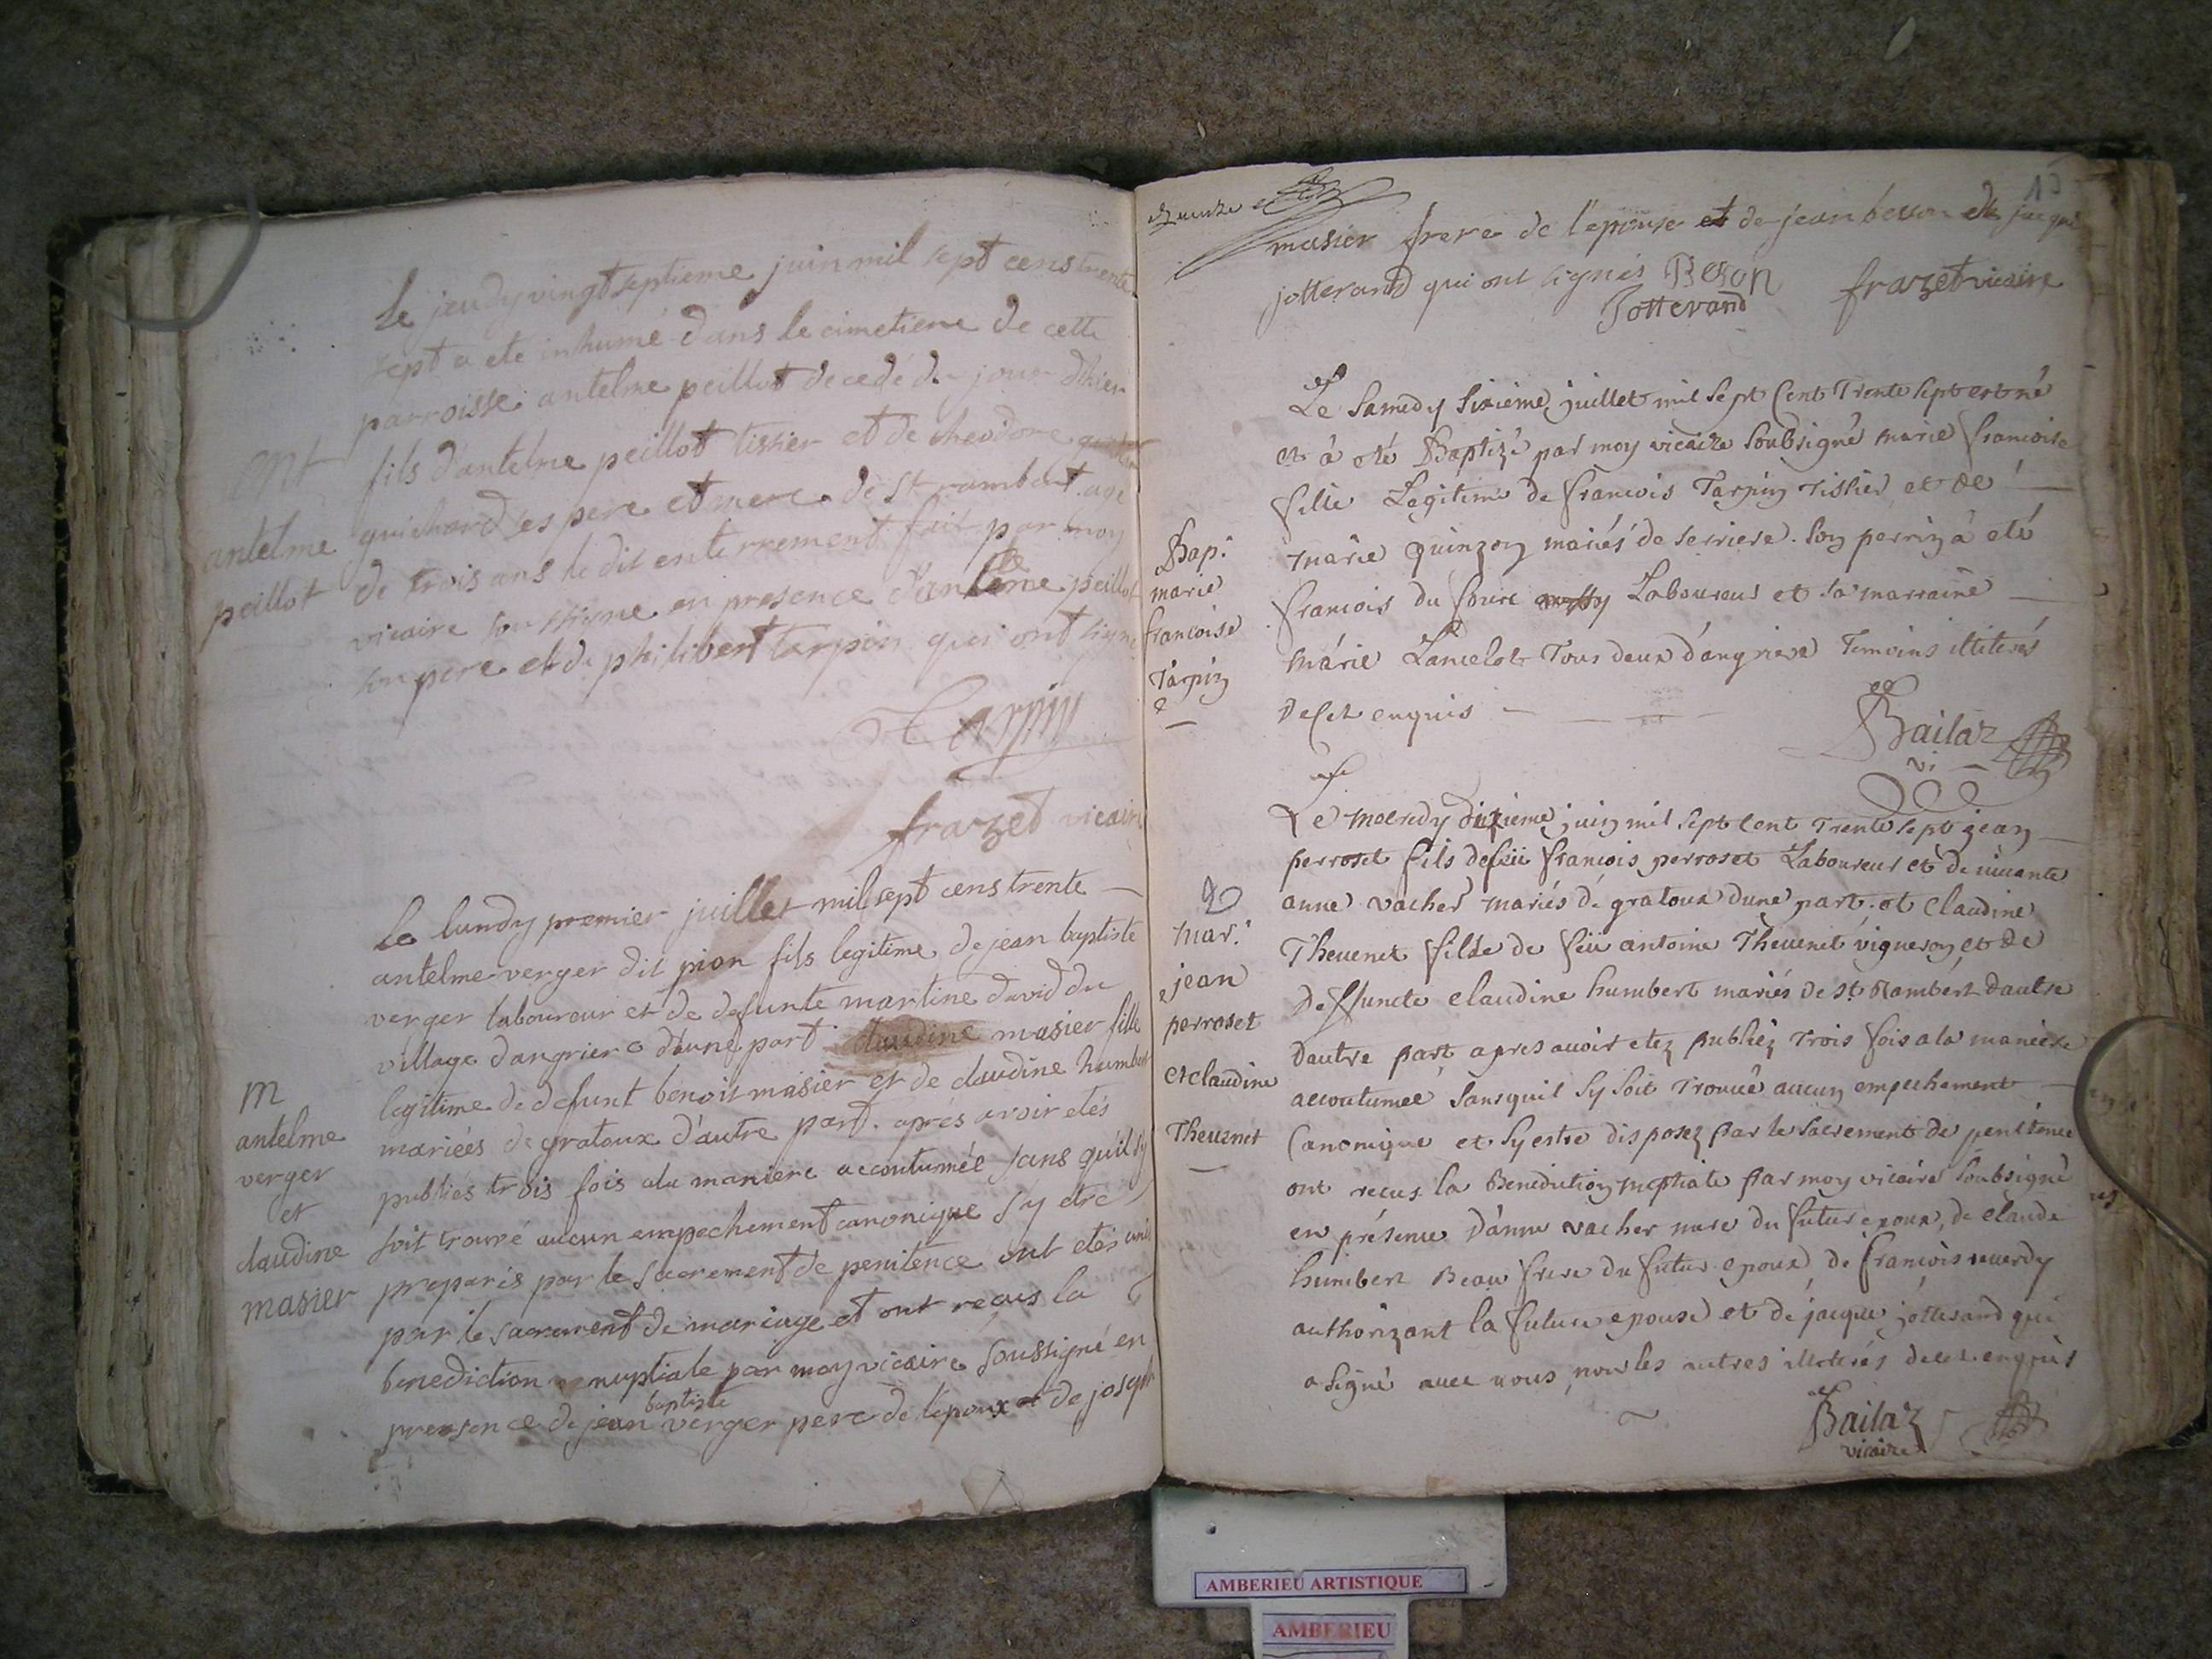 Le jeudy vingt septieme juin mil sept cens trente
sept a ete inhumé dans le cimetiere de cette
parroisse antelme peillot decedé du jour d'hier
fils d'antelme peillot tissier et de theodore
guichard ses pere et mere de St rambert agé
de trois ans le dit enterrement fait par moy
vicaire soussigné en presence d'antelme peillot
son pere et de philibert tarpin qui ont signé
Ent
antelme
peillot
Tarpin
frazet vicaire
Le lundy premier juillet mil sept cens trente
antelme verger dit pion fils legitime de jean baptiste
verger laboureur et de defunte martine david du
village d'angriere d'une part claudine masier fille
legitime de defunt benoit masier et de claudine humbert
mariées de gratoux d'autre part. aprés avoir etés
publiés trois fois a la maniere accoutumée sans qu'il s'y
soit trouvé aucun empechement canonique s'y etre
preparés par le sacrement de penitence ont etés unis
par le sacrement de mariage et ont reçus la
benediction nuptiale par moy vicaire soussigné en
presence de jean baptiste verger pere de l'epoux et de joseph
m
antelme
verger
et
claudine
masier
masier frere de l'epouse et de jean besson et de jacque
jotterand qui ont signés Beson frazet vicaire
Jotterand
Le Samedy Sixieme juillet mil Sept Cent Trente Sept est né
et à eté Baptizé par moy vicaire Soubsigné marie francoise
fille Legitime de francois Tarpin Tissier et de
marie quinzon mariés de serriere. Son perrin à eté
francois du foure Laboureur et sa marraine
marie Lancelot Tous deux d'angriere Temoins illiterés
de ce enquis
Bap.
marie
francoise
Tarpin
Bailaz
vi
Le mecredy dixieme juin mil Sept Cent Trente Sept jean
perroset fils de feu francois perroset Laboureur et de vivante
anne vacher mariés de gratoux dune part. et Claudine
Thevenet fille de feu antoine Thevenet vigneron et de
deffuncte claudine humbert mariés de St Rambert dautre
dautre part apres avoir etez publiez Trois fois a la maniere
accoutumée Sans quil Sy Soit Trouvé aucun empechement
Canonique et Sy estre disposez par le Sacrement de penitence
ont recus la Benediction nuptiale par moy vicaire Soubsigné
en présence d'anne vacher mere du futur epoux, de claude
humbert Beau frere du futur epoux de francois
authorizant la future epouse et de jacque jotterand qui
a Signé avec nous, non les autres illiterés de ce enquis
mar.
jean
perroset
et claudine
Thevenet
Bailaz
vicaire
AMBERIEU ARTISTIQUE
AMBERIEU